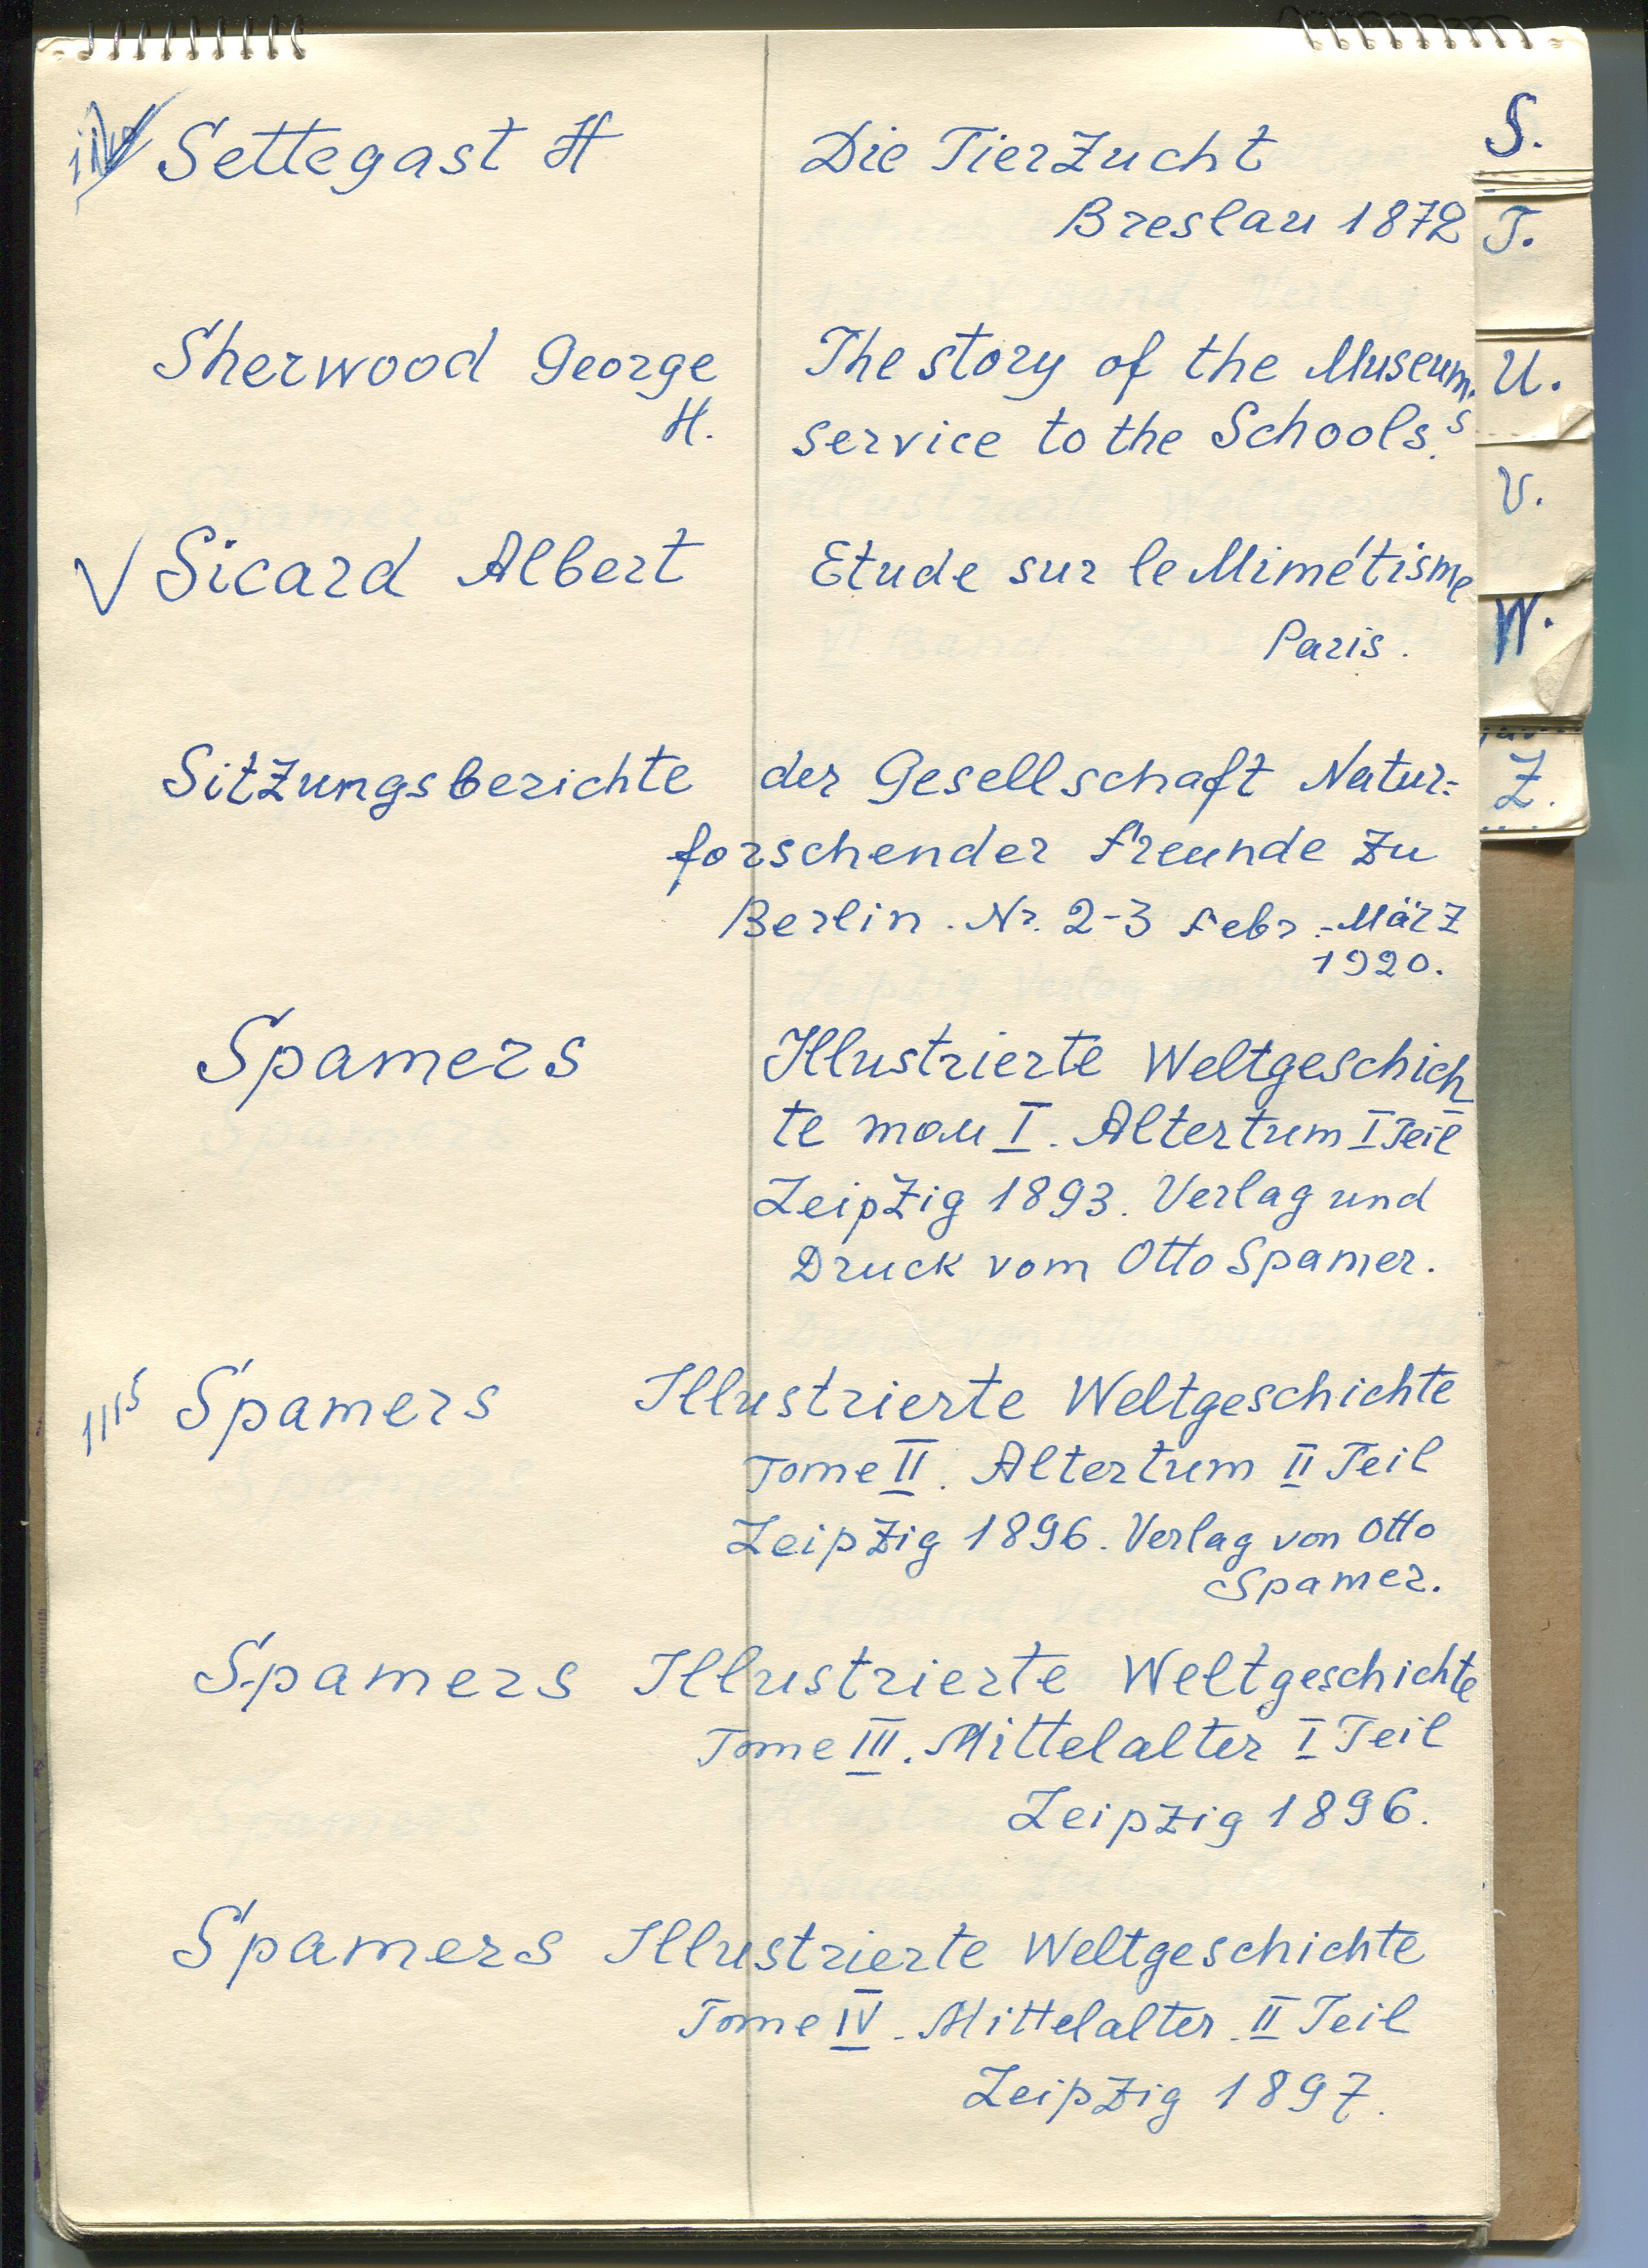 Settegast H Die Tierzucht
Breslau 1872
Sherwood George The story of the Museum's
H. service to the Schools.
Sicard Albert Etude sur le Mimétisme
Paris.
Sitzungsberichte der Gesellschaft Natur=
forschender Freunde zu
Berlin. Nr. 2-3 Febr.-März
1920.
Spamers Illustrierte Weltgeschich
te I. Altertum I Teil
Leipzig 1893. Verlag und
Druck vom Otto Spamer.
Spamers Illustrierte Weltgeschichte
Tome II. Altertum II Teil
Leipzig 1896. Verlag von Otto
Spamer.
Spamers Illustrierte Weltgeschichte
Tome III. Mittelalter I Teil
Leipzig 1896.
Spamers Illustrierte Weltgeschichte
Tome IV. Mittelalter. II Teil
Leipzig 1897.
S.
T.
U.
V.
W.
Z.